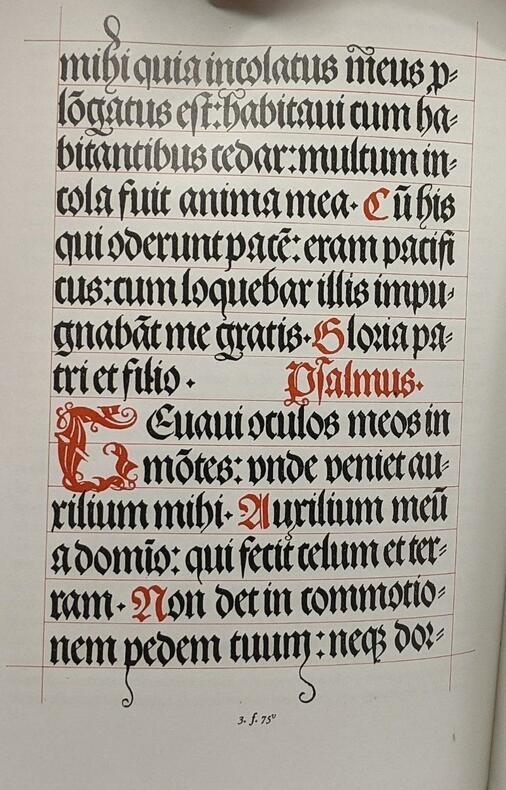 mihi quia incolatus m̄eus p⸗
lōgatus eſt: habitaui cum ha⸗
bitantibus cedar: multum in⸗
cola fuit anima mea. Cū his
qui oderunt pacē: eram pacifi
cus: cum loquebar illis impu⸗
gnabāt me gratis. Gloria pa⸗
tri et filio. Pſalmus.
LEuaui oculos meos in
mōtes: vnde veniet au⸗
xilium mihi. Auxilium meū
a domīo: qui fecit celum et ter⸗
ram. Non det in commotio⸗
nem pedem tuum: neqꝫ dor⸗
3. f. 75v